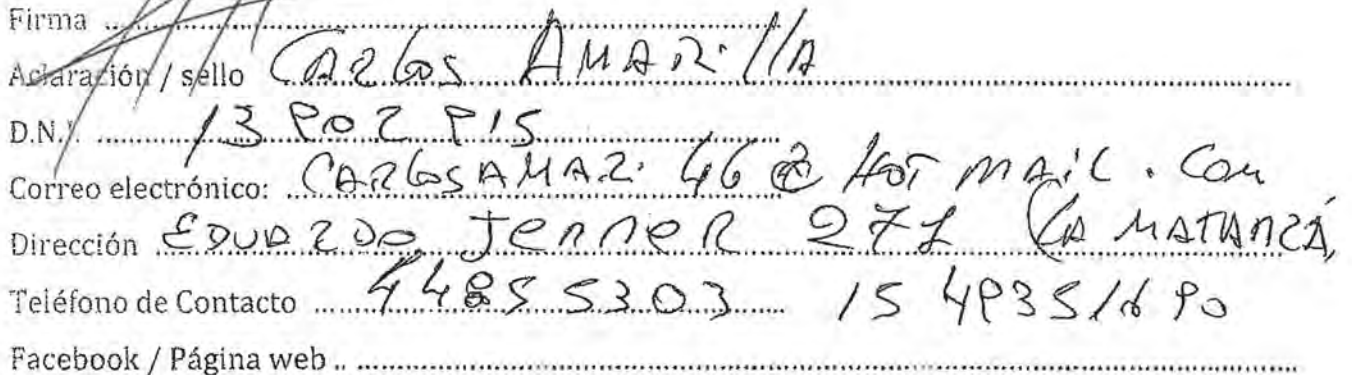 Firma
Aclaración / sello CARLOS AMARILLA
D.N.I. 13 902 915
Correo electrónico: CARLOSAMARI46@HOTMAIL.COM
Dirección EDUARDO JENNER 271 LA MATANZA,
Teléfono de Contacto 4485 5303 15 49351690
Facebook / Página web